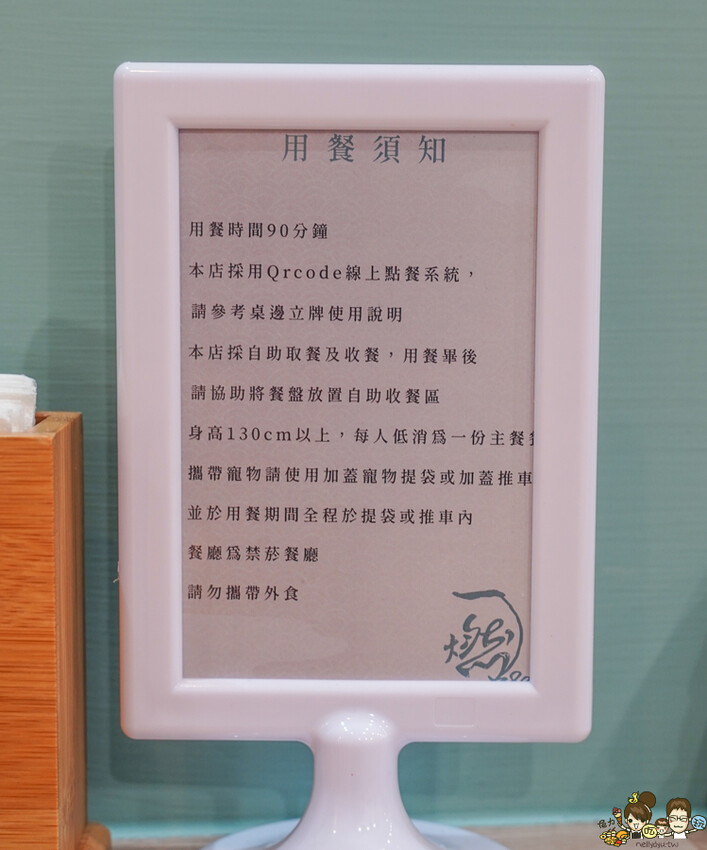 用餐須知
用餐時間90分鐘
本店採用Qrcode線上點餐系統，
請參考桌邊立牌使用說明
本店採自助取餐及收餐，用餐畢後
請協助將餐盤放置自助收餐區
身高130cm以上，每人低消為一份主餐
攜帶寵物請使用加蓋寵物提袋或加蓋推車
並於用餐期間全程於提袋或推車內
餐廳為禁菸餐廳
請勿攜帶外食
一燃
nellydyu.tw